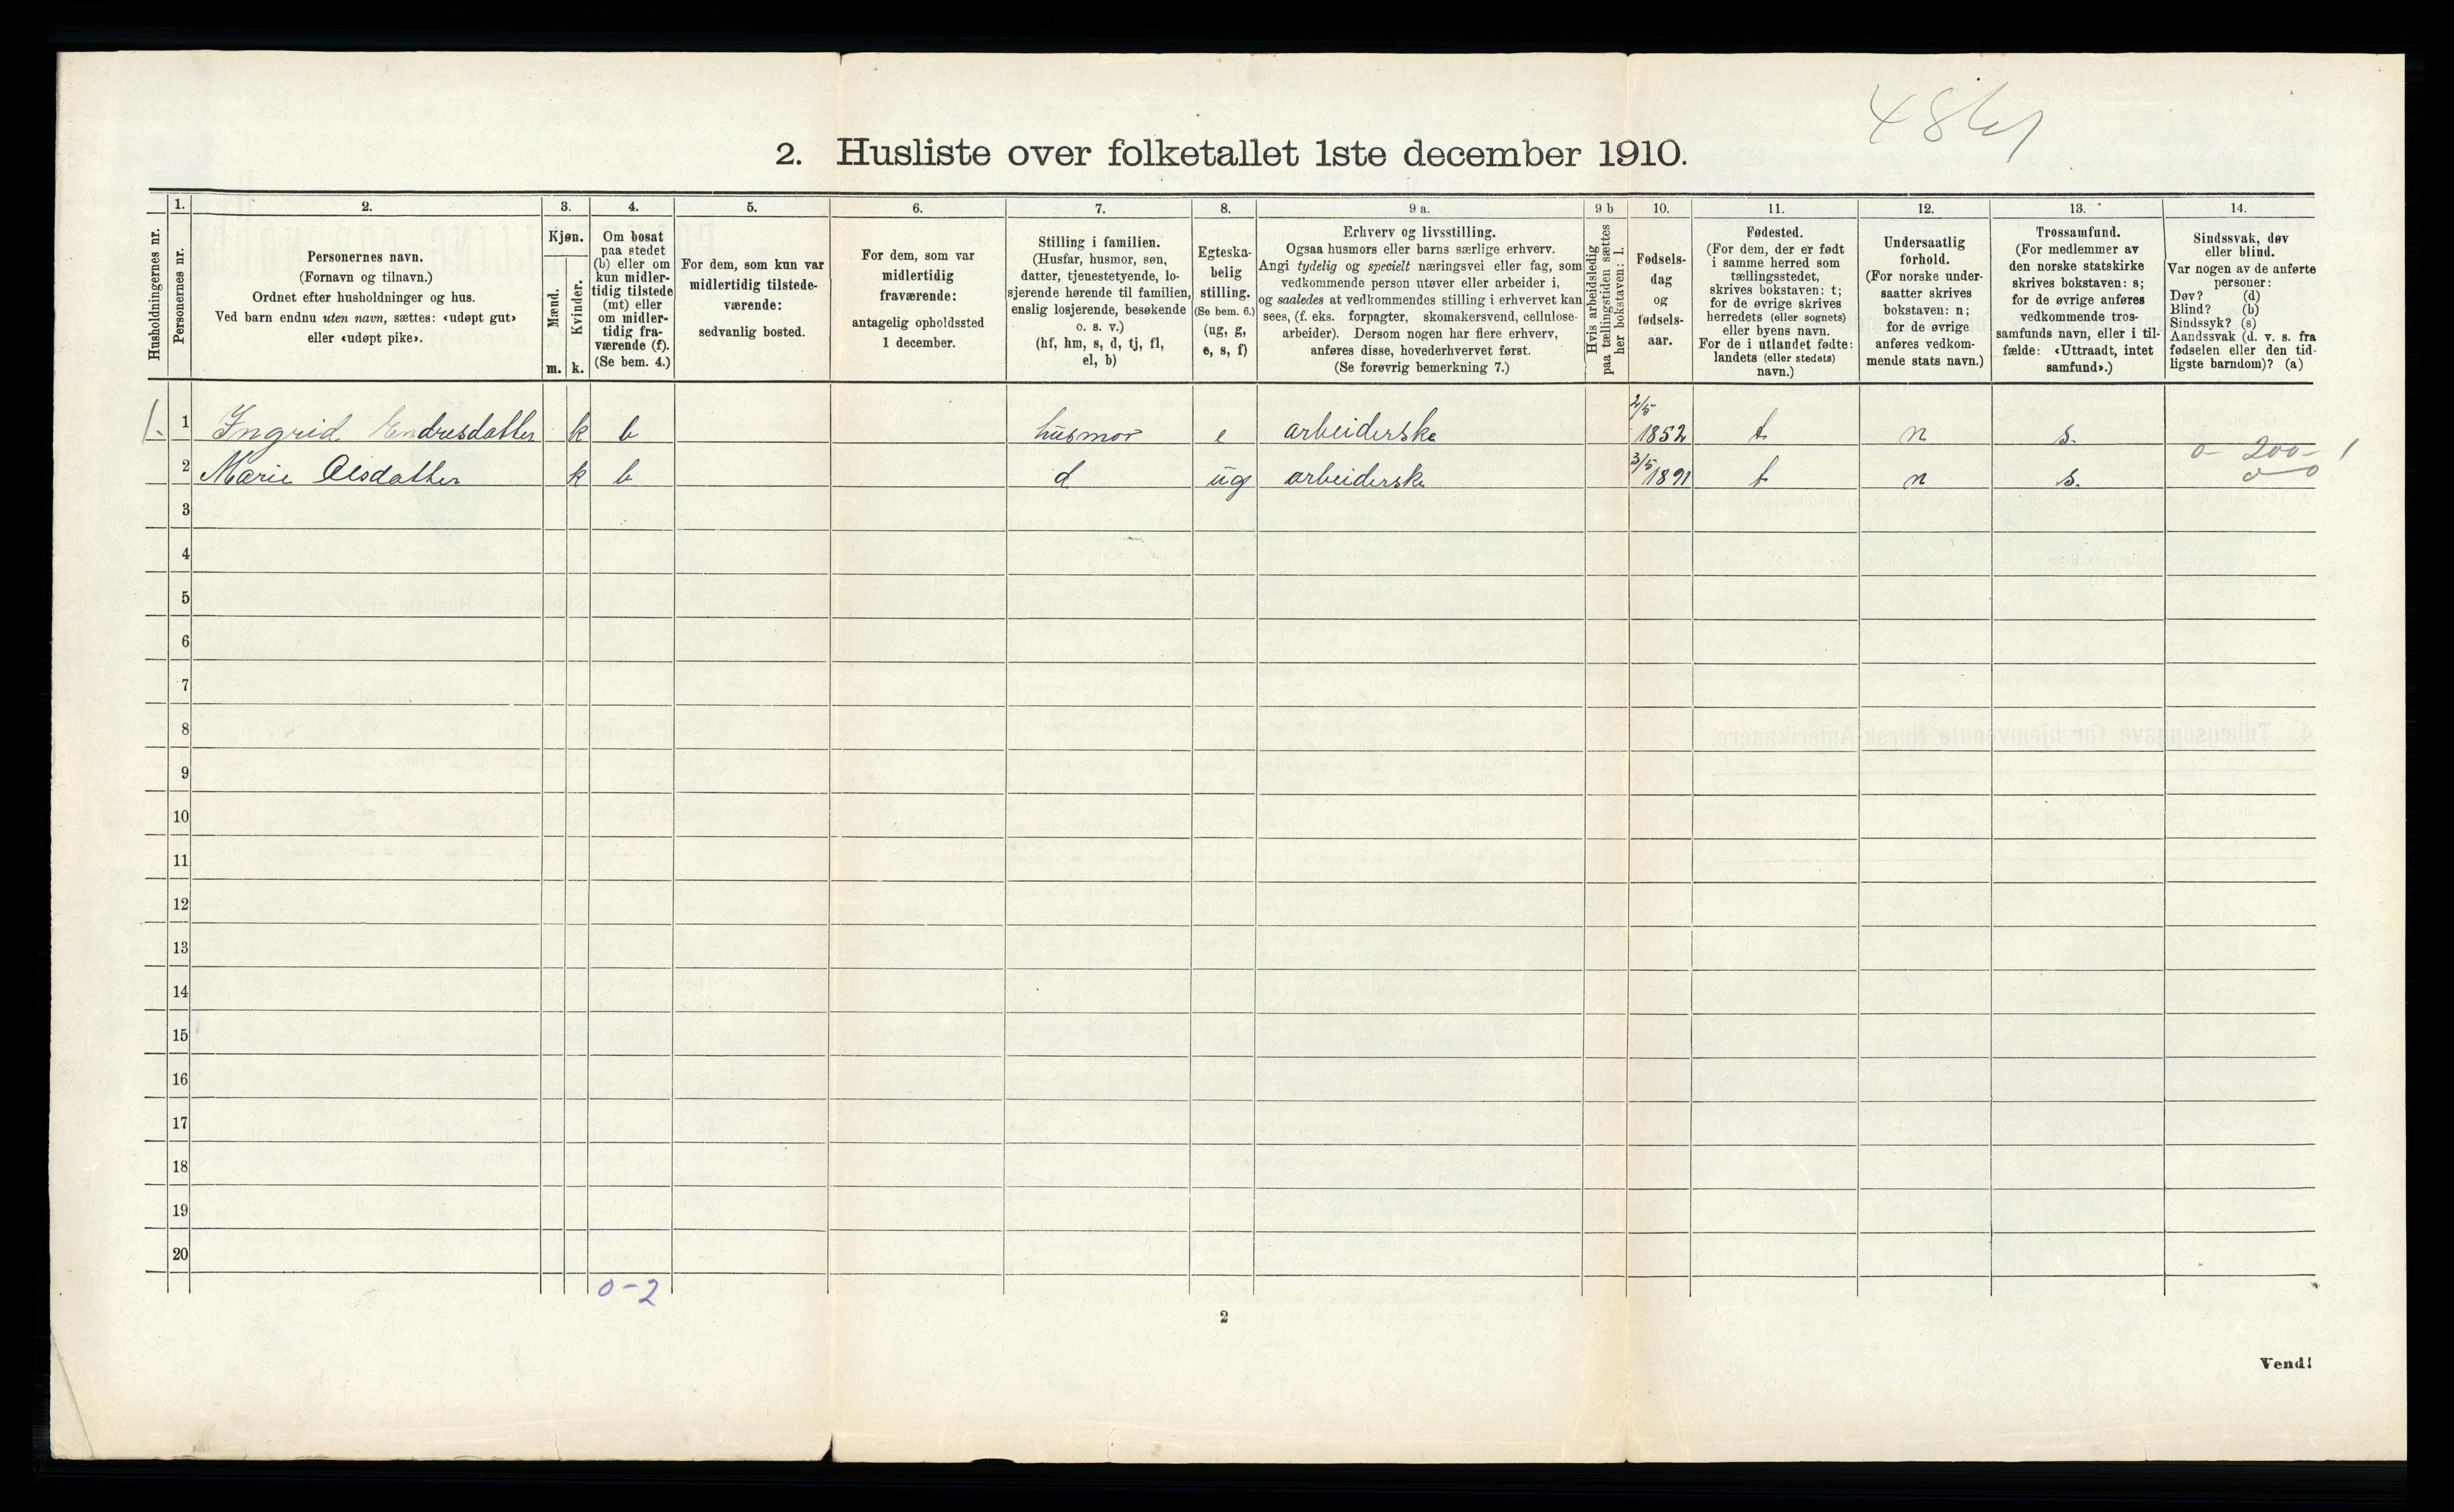 2. Husliste over folketallet 1ste december 1910.
Husholdningernes nr.
1.
Personernes nr.
2.
Personernes navn.
(Fornavn og tilnavn.)
Ordnet efter husholdninger og hus.
Ved barn endnu uten navn, sættes: «udøpt gut»
eller «udøpt pike».
3.
Kjøn.
Mænd.
Kvinder.
m. k.
4.
Om bosat
paa stedet
(b) eller om
kun midler-
tidig tilstede
(mt) eller
om midler-
tidig fra-
værende (f).
(Se bem. 4.)
5.
For dem, som kun var
midlertidig tilstede-
værende:
sedvanlig bosted.
6.
For dem, som var
midlertidig
fraværende:
antagelig opholdssted
1 december.
7.
Stilling i familien.
(Husfar, husmor, søn,
datter, tjenestetyende, lo-
sjerende hørende til familien,
enslig losjerende, besøkende
o. s. v.)
(hf, hm, s, d, tj, fl,
el, b)
8.
Egteska-
belig
stilling.
(Se bem. 6.)
(ug, g,
e, s, f)
9 a.
Erhverv og livsstilling.
Ogsaa husmors eller barns særlige erhverv.
Angi tydelig og specielt næringsvei eller fag, som
vedkommende person utøver eller arbeider i,
og saaledes at vedkommendes stilling i erhvervet kan
sees, (f. eks. forpagter, skomakersvend, cellulose-
arbeider). Dersom nogen har flere erhverv,
anføres disse, hovederhvervet først.
(Se forøvrig bemerkning 7.)
9 b
Hvis arbeidsledig
paa tællingstiden sættes
her bokstaven: l.
10.
Fødsels-
dag
og
fødsels-
aar.
11.
Fødested.
(For dem, der er født
i samme herred som
tællingsstedet,
skrives bokstaven: t;
for de øvrige skrives
herredets (eller sognets)
eller byens navn.
For de i utlandet fødte:
landets (eller stedets)
navn.)
12.
Undersaatlig
forhold.
(For norske under-
saatter skrives
bokstaven: n;
for de øvrige
anføres vedkom-
mende stats navn.)
13.
Trossamfund.
(For medlemmer av
den norske statskirke
skrives bokstaven: s;
for de øvrige anføres
vedkommende tros-
samfunds navn, eller i til-
fælde: «Uttraadt, intet
samfund».)
14.
Sindssvak, døv
eller blind.
Var nogen av de anførte
personer:
Døv? (d)
Blind? (b)
Sindssyk? (s)
Aandssvak (d. v. s. fra
fødselen eller den tid-
ligste barndom)? (a)
1. 1 Ingrid Endresdatter k b husmor e arbeiderske 2/5 1852 t n s.
0- 200- 1
2 Marie Olsdatter k b d ug arbeiderske 3/5 1891 t n s. 0-0
3
4
5
6
7
8
9
10
11
12
13
14
15
16
17
18
19
20
0-2
2
Vend!